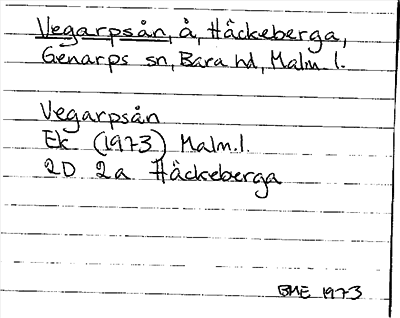 Vegarpsån, å, Häckeberga,
Genarps sn, Bara hd, Malm. l.
Vegarpsån
Ek (1973) Malm.l.
2D 2a Häckeberga
BME 1973